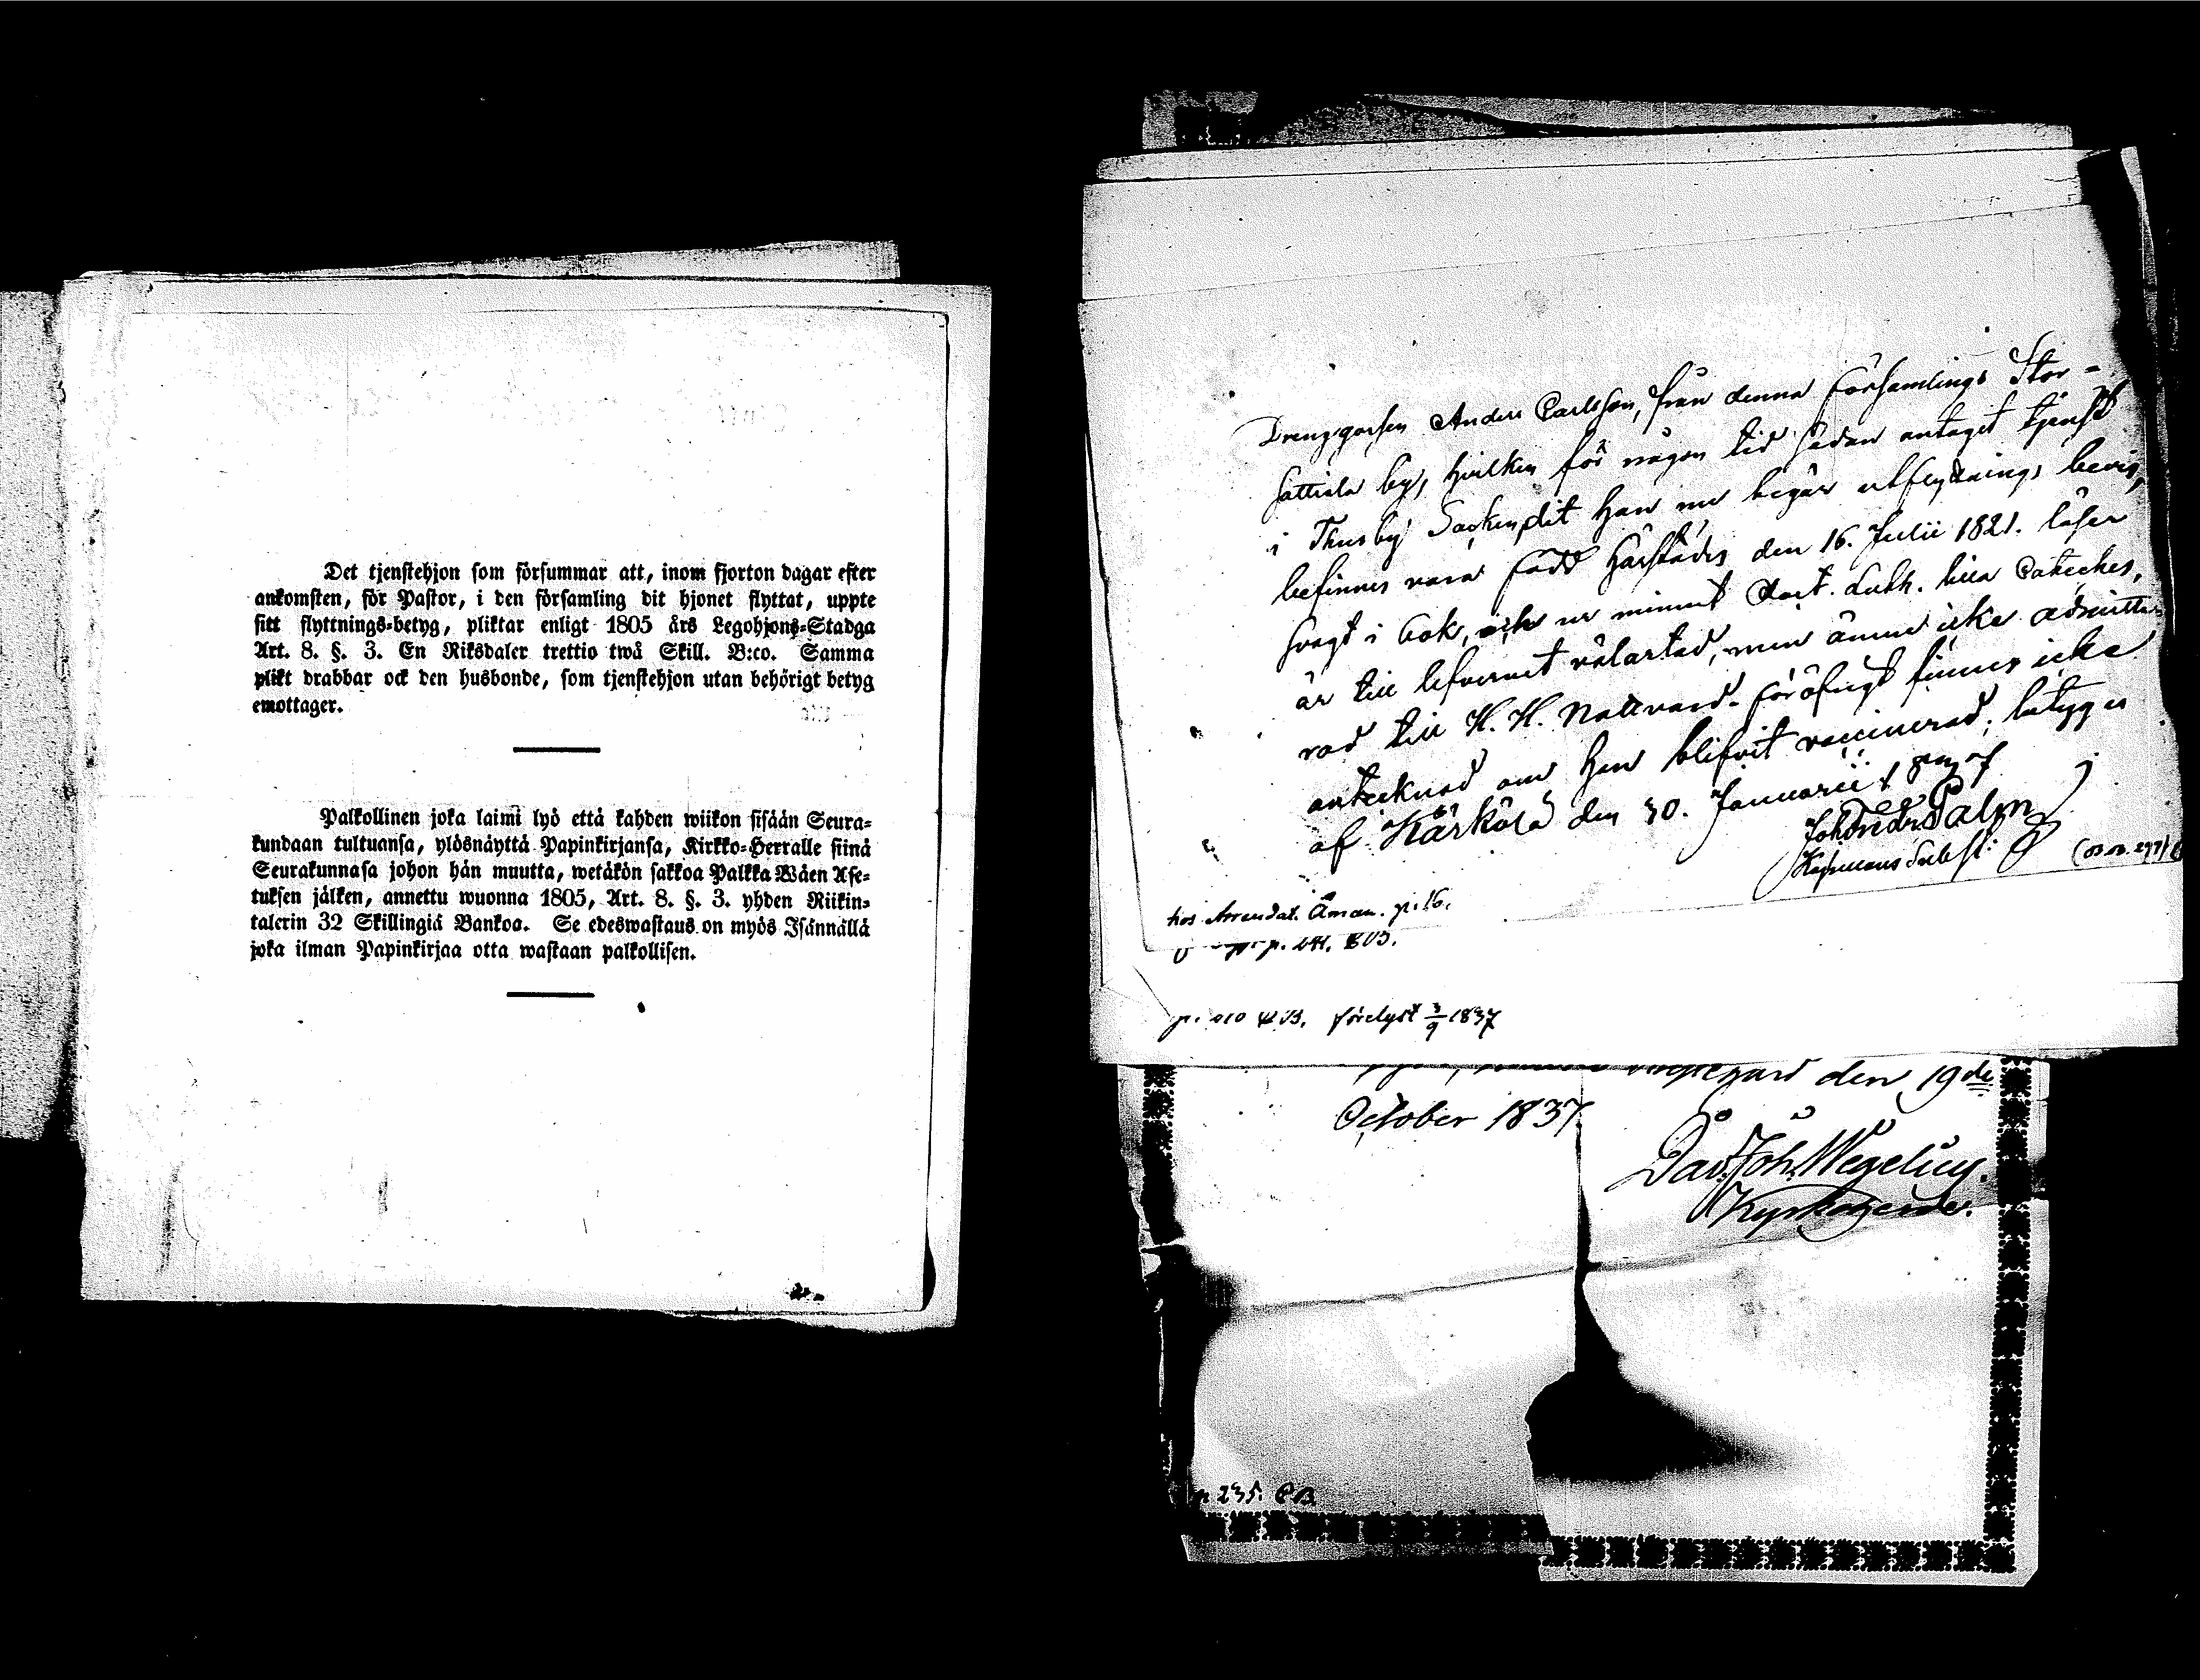 Det tjenstehjon som försummar att, inom fjorton dagar efter
ankomsten, för Pastor, i den församling dit hjonet flyttat, uppte
sitt flyttnings-betyg, pliktar enligt 1805 års Legohjons-Stadga
Art. 8. §. 3. En Riksdaler trettio twå Skill. B:co. Samma
plikt drabbar ock den husbonde, som tjenstehjon utan behörigt betyg
emottager.
Palkollinen joka laimi lyö että kahden wiikon sisään Seura-
kundaan tultuansa, ylösnäyttä Papinkirjansa, Kirkko-Herralle siinä
Seurakunnasa johon hän muutta, wetäkön sakkoa Palkka Wäen Ase-
tuksen jälken, annettu wuonna 1805, Art. 8. §. 3. yhden Riikin-
talerin 32 Skillingiä Bankoa. Se edeswastaus on myös Isännällä
joka ilman Papinkirjaa otta wastaan palkollisen.
Drenggossen Anders Carlsson, från denna Församlings Stor-
sattiala by, hvilken för någon tid sedan antagit tjenst
i Thusby Socken, dit han nu begär utflyttnings bevis,
befinnes vara född härstädes den 16. Julii 1821. läser
svagt i bok, och ur minnet Luth. lilla Cateches,
är till lefvernet välartad, men ännu icke admitte-
rad till H. H. Nattvard. Föröfrigt finnes icke
antecknad om han blifvit vaccinerad; betygas
af Kärkölä den 30. Januarii
Palm
hos Arrendat. Åman. p. 16.
p. 241.
p. förelyst 3/9 1837
den 19de
October 1837.
Dav. Joh. Wegelius.
Kyrkoherde.
p 235. CB.